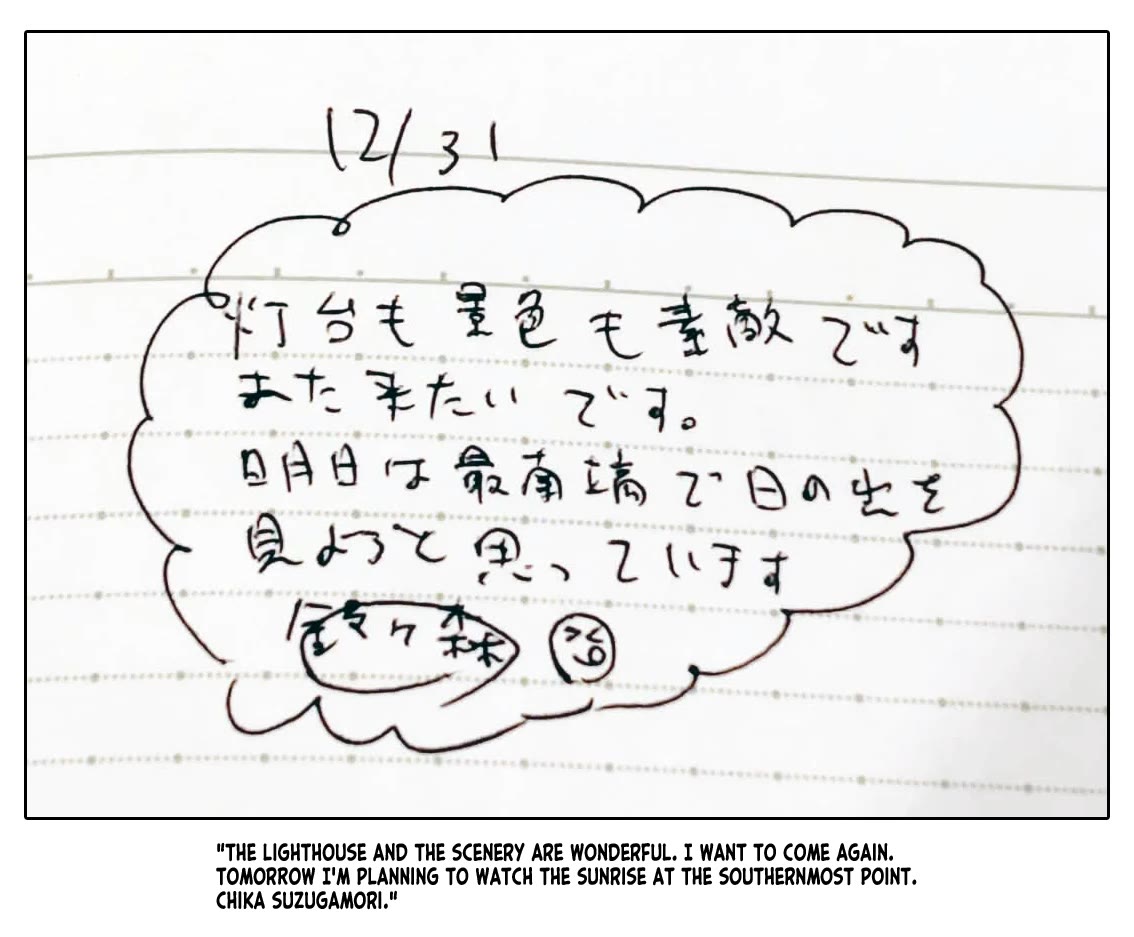 12/31
灯台も景色も素敵です
また来たいです。
明日は最南端で日の出を
見ようと思っています
鈴々森
"THE LIGHTHOUSE AND THE SCENERY ARE WONDERFUL. I WANT TO COME AGAIN.
TOMORROW I'M PLANNING TO WATCH THE SUNRISE AT THE SOUTHERNMOST POINT.
CHIKA SUZUGAMORI."